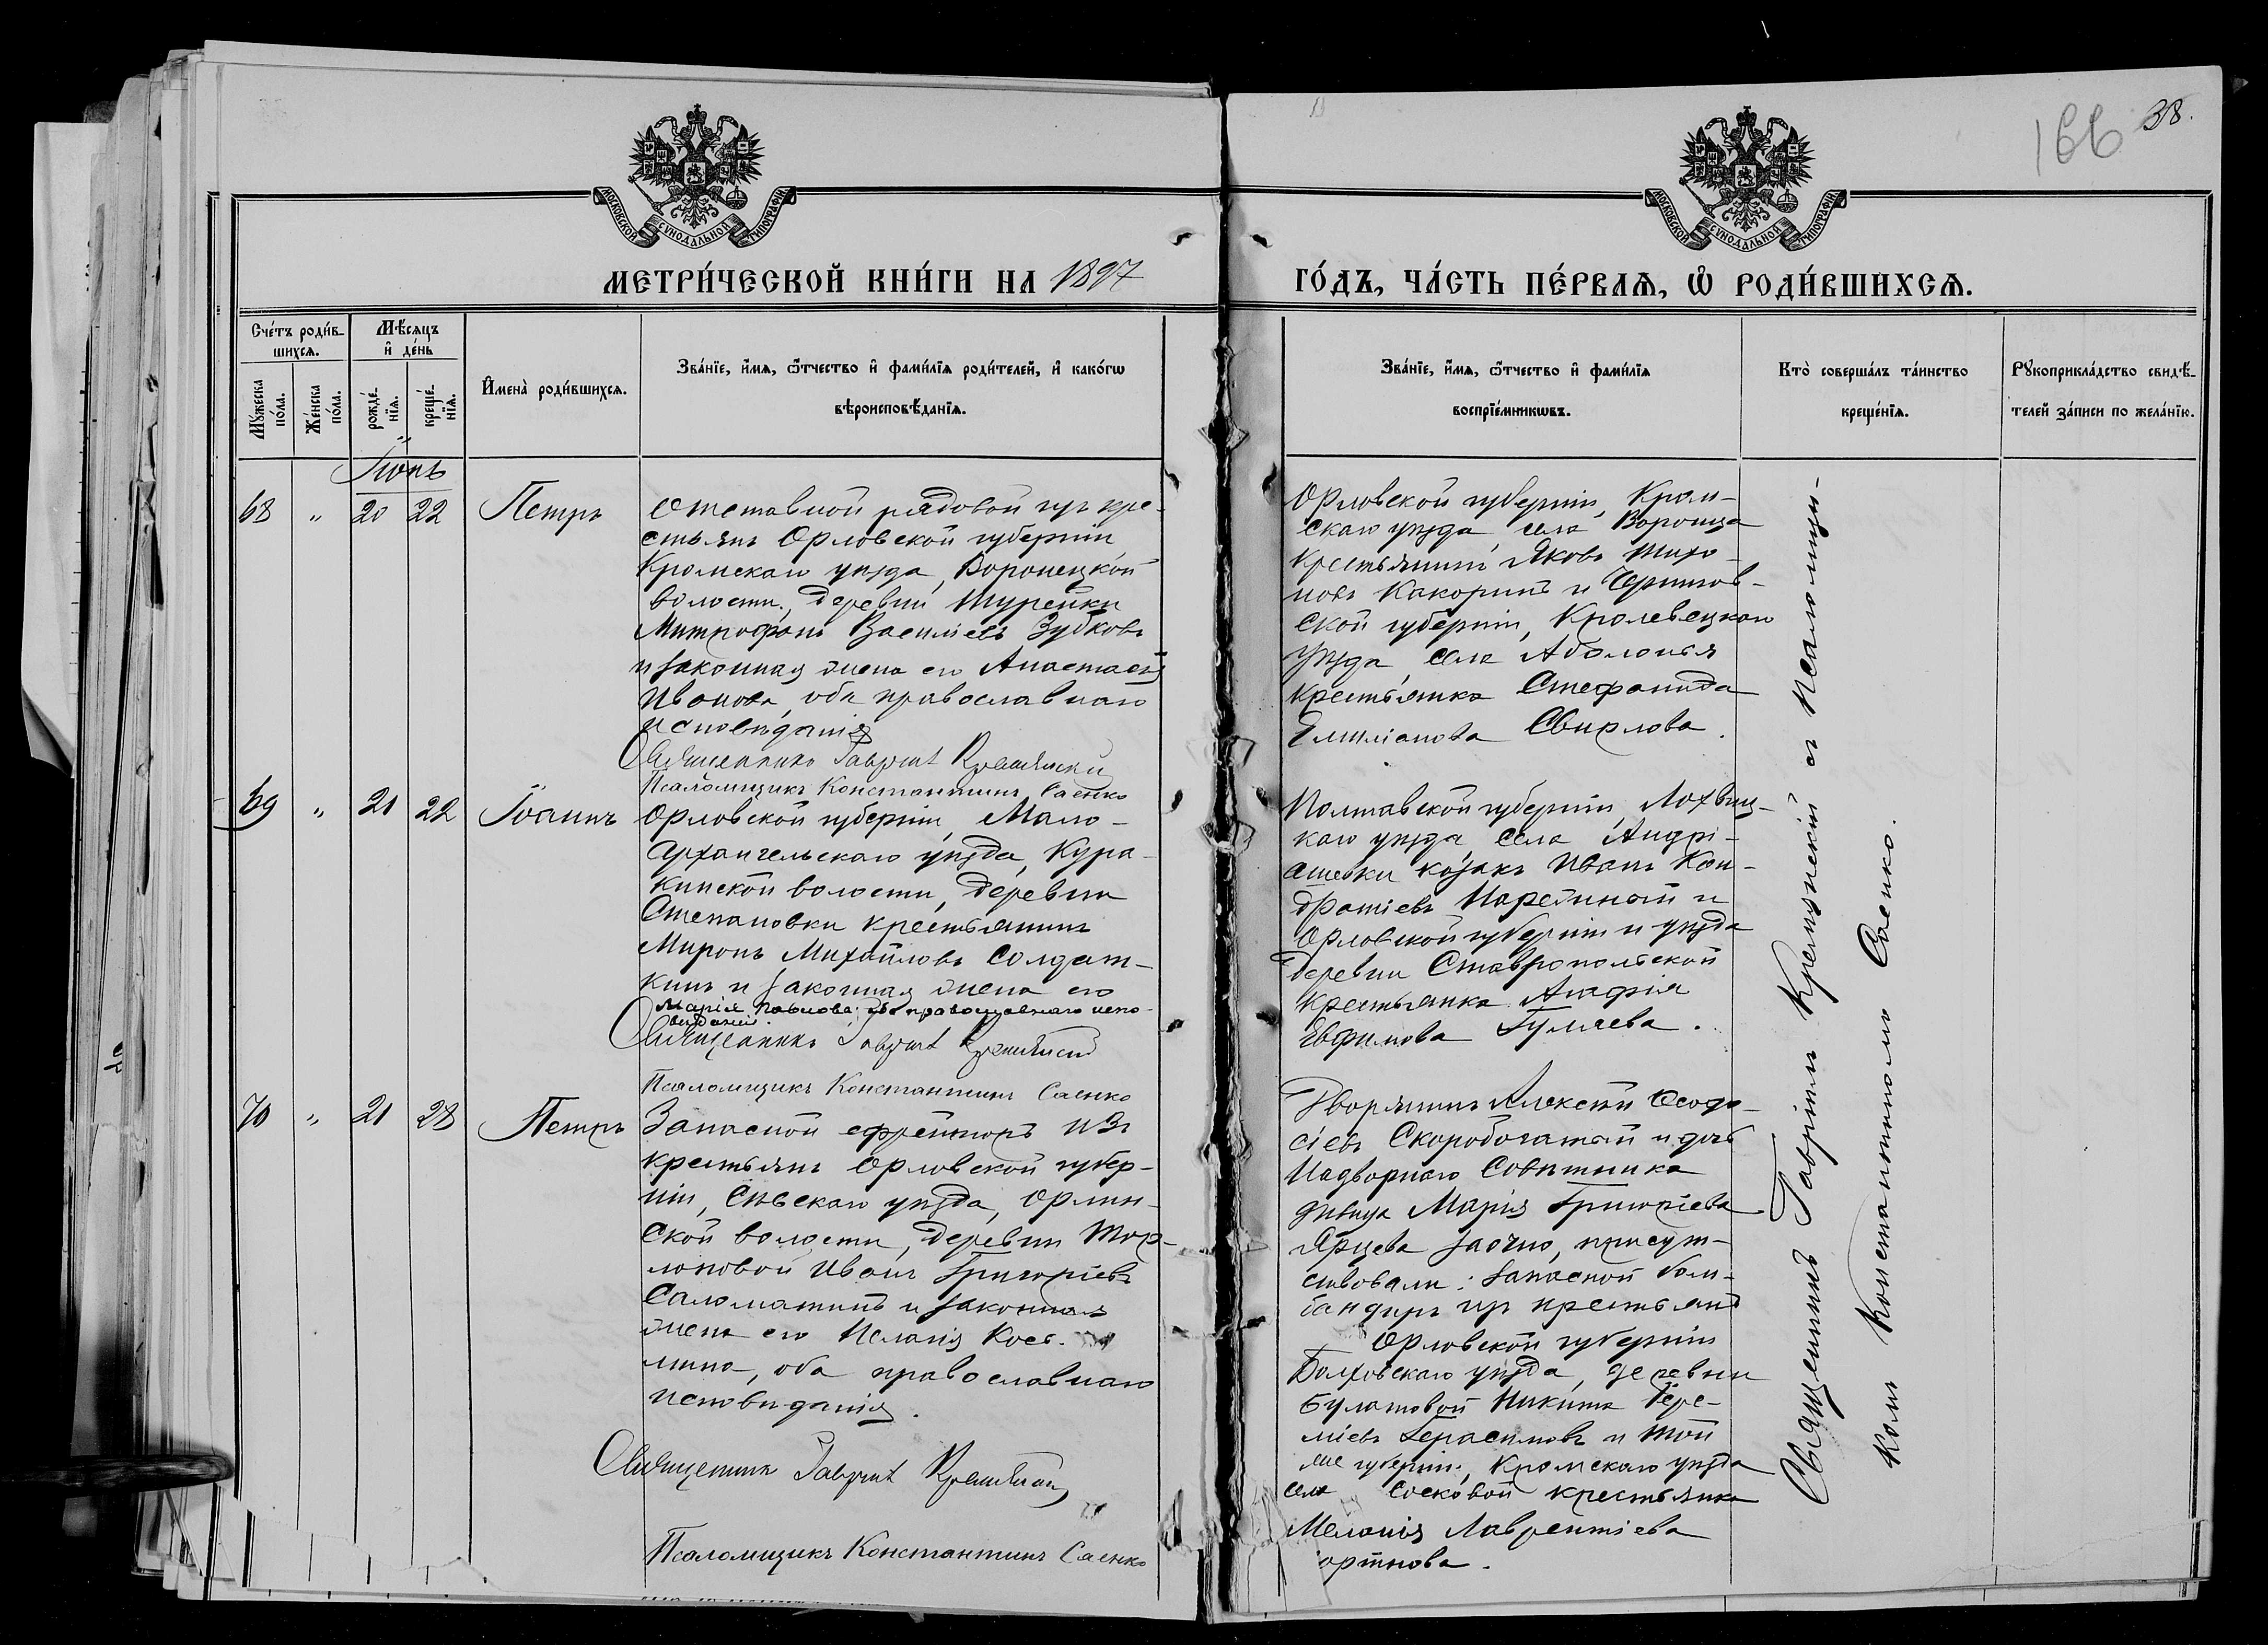 166 38.
МОСКОВСКОЙ СѴНОДАЛЬНОЙ ТИПОГРАФІИ
МОСКОВСКОЙ СѴНОДАЛЬНОЙ ТИПОГРАФІИ
МЕТРИ́ЧЕСКОЙ КНИ́ГИ НА 1897
ГО́ДЪ, ЧА́СТЬ ПЕ́РВАѦ, Ѽ РОДИ́ВШИХСѦ.
Сче́тъ роди́в-
шихсѧ.
Мѣ́сѧцъ
и҆ де́нь
Мꙋ́жеска
по́ла.
Же́нска
по́ла.
рожде́-
нїѧ.
креще́-
нїѧ.
И҆мена̀ роди́вшихсѧ.
Зва́нїе, и҆́мѧ, ѻ҆́тчество и҆ фами́лїѧ роди́телей, и҆ како́гѡ
вѣроисповѣ́данїѧ.
Зва́нїе, и҆́мѧ, ѻ҆́тчество и҆ фами́лїѧ
воспрїе́мникѡвъ.
Кто̀ соверша́лъ та́инство
креще́нїѧ.
Рꙋкоприкла́дство свидѣ́-
телей за́писи по жела́нїю.
Іюнь
68 " 20 22 Петръ
Отставной рядовой изъ кре-
стьянъ Орловской губерніи
Кромскаго уѣзда, Воронецкой
волости, деревни Шурейки
Митрофанъ Василіевъ Зубковъ
и законная жена его Анастасія
Иванова, оба православнаго
исповѣданія
Священникъ Гавріилъ
Псаломщикъ Константинъ Саенко
Орловской губерніи, Кром-
скаго уѣзда села Воронца
крестьянинъ Яковъ Тихо-
новъ Какоринъ и Чернигов-
ской губерніи, Кролевецкаго
уѣзда села Аболонья
крестьянка Стефанида
Емиліанова Свирлова.
69 " 21 22 Іоаннъ
Орловской губерніи, Мало-
архангельскаго уѣзда, Кура-
кинской волости, деревни
Степановки крестьянинъ
Миронъ Михайловъ Солдат-
кинъ и законная жена его
Марія Павлова, оба православнаго испо-
вѣданія.
Священникъ Гавріилъ
Псаломщикъ Константинъ Саенко
Полтавской губерніи, Лохвиц-
каго уѣзда, села Андрі-
яшевки козакъ Иванъ Кон-
дратіевъ и
Орловской губерніи и уѣзда
деревни Ставропольской
крестьянка Агафія
Евфимова Гуляева.
70 " 21 28 Петръ
Запасной ефрейторъ изъ
крестьянъ Орловской губер-
ніи, Сѣвскаго уѣзда, Орлин-
ской волости, деревни
Иванъ Григоріевъ
Саломатинъ и законная
жена его Пелагія Кос-
мина, оба православнаго
исповѣданія.
Священникъ Гавріилъ
Псаломщикъ Константинъ Саенко
Дворянинъ Алексѣй Ѳеодо-
сіевъ Скоробогатый и дочь
Надворнаго Совѣтника
дѣвица Марія Григоріева
Ярцева заочно, присут-
ствовали: запасной бом-
бандиръ изъ крестьянъ
Орловской губерніи
Болховскаго уѣзда, деревни
Булатовой Никита Іере-
міевъ Герасимовъ и той
же губерніи, Кромскаго уѣзда
села Сосковой крестьянка
Меланія Лаврентіева
Священникъ Гавріилъ съ Псаломщи-
комъ Константиномъ Саенко.